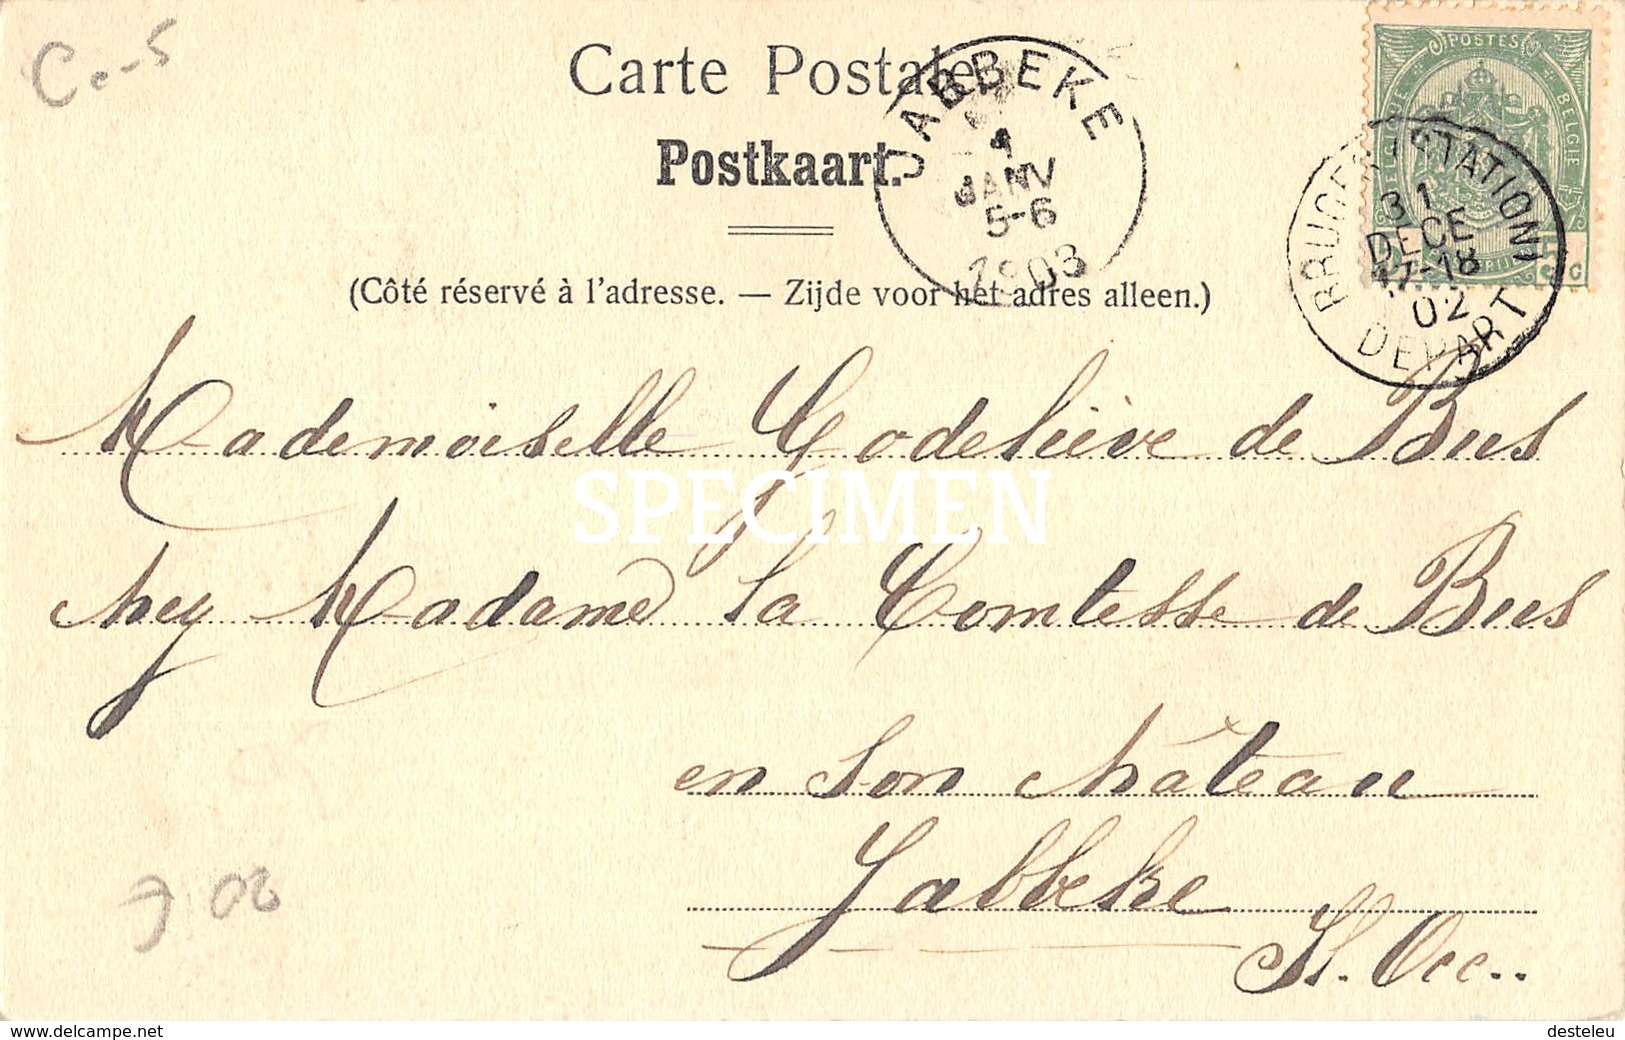 Ce-5
Carte Postale
Postkaart.
(Côté réservé à l'adresse. — Zijde voor het adres alleen.)
JABBEKE
1
JANV
5-6
1903
POSTES
BELGIQUE
BELGIE
5 C
BRUGES (STATION)
31
DECE
17-18
02
DEPART
Mademoiselle Godeliève de Bus
chez Madame la Comtesse de Bus
en son château
Jabbeke
Fl. Occ..
SPECIMEN
My.delcampe.net
desteleu